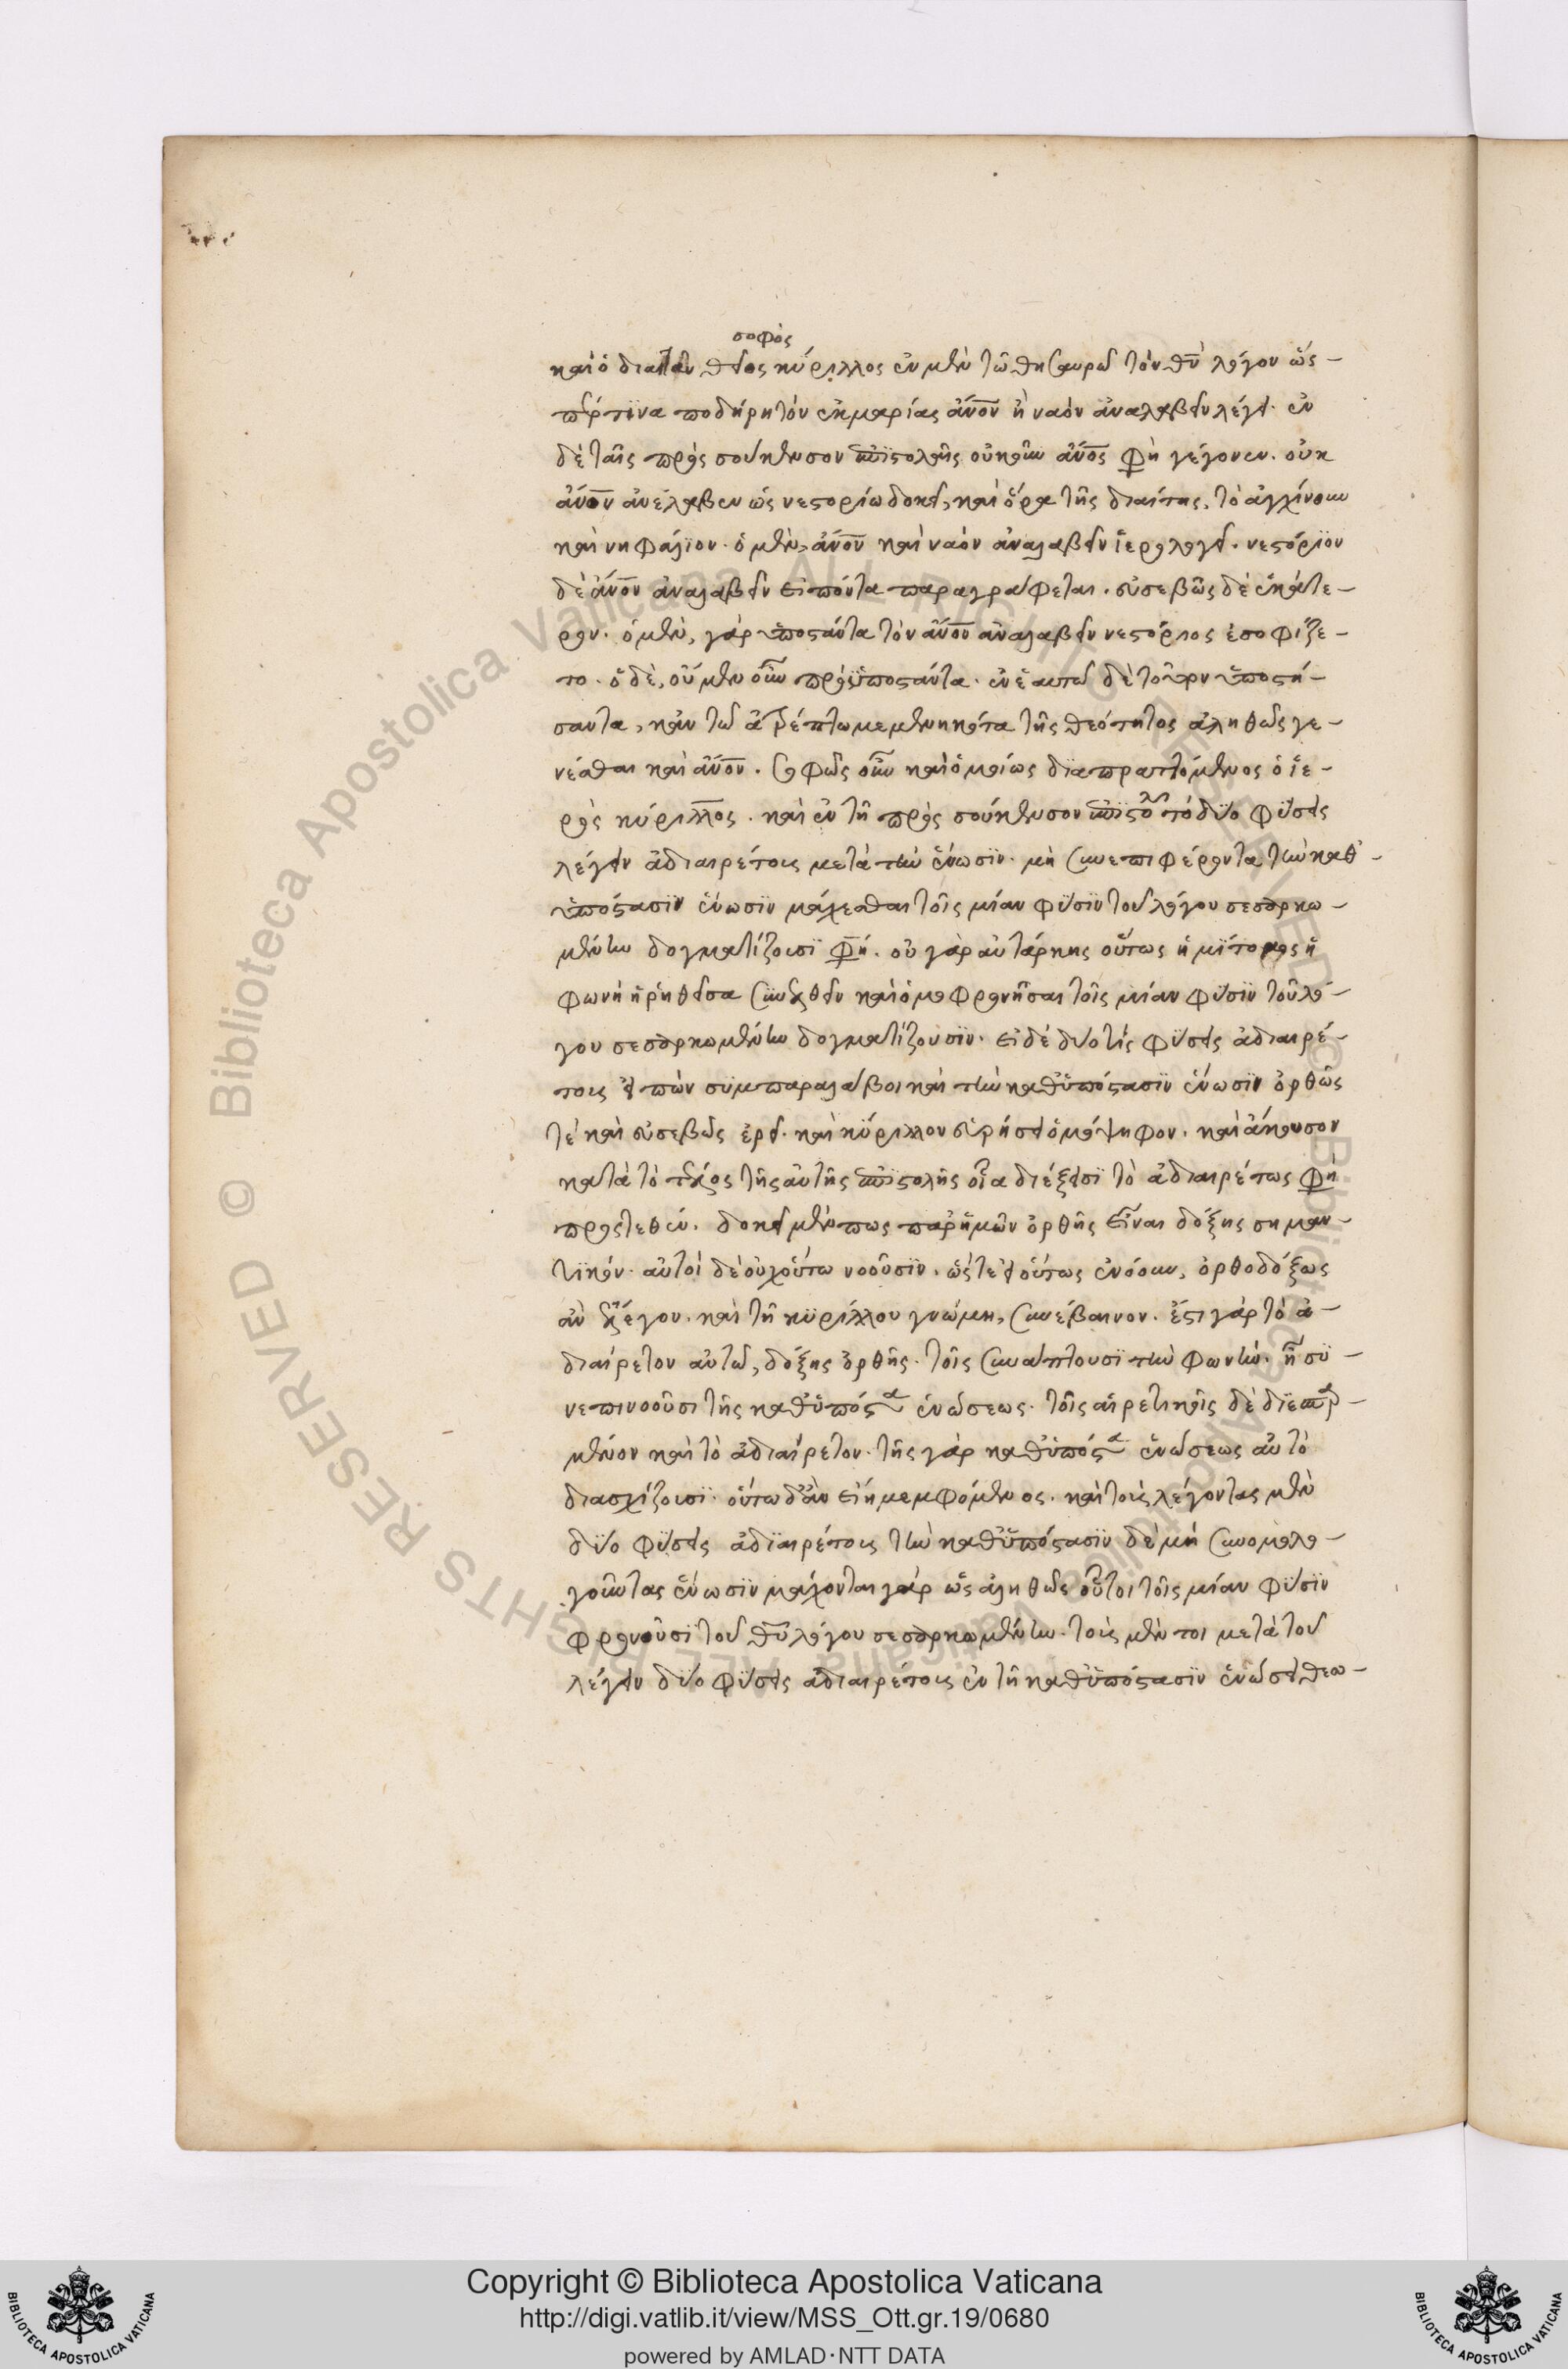 σοφὸς
καὶ ὁ διαιτᾶν θεῖος κύριλλος ἐν μὲν τῶ θησαυρῶ τὸν θῦ λόγον ὥσ-
περ τινα ποδήρη τὸν ἐκ μαρίας ἄνον ἢ ναὸν ἀναλαβεῖν λέγει. ἐν
δὲ ταῖς πρὸς σούκενσον ἐπιστολαῖς οὐκοῦν ἄνος φη γέγονεν. οὐκ
ἄνον ἀνέλαβεν ὡς νεστορίω δοκεῖ, καὶ ὅρα τῆς διαίτης, τὸ ἀγχίνουν
καὶ νηφάλιον. ὁ μὲν, ἄνον καὶ ναὸν ἀναλαβεῖν ἱερολογεῖ. νεστόριον
δὲ ἄνον ἀναλαβεῖν εἰπόντα παραγράφεται. εὐσεβῶς δὲ ἑκάτε-
ρον. ὁ μὲν, γὰρ ὑποστάντα τὸν ἄνον ἀναλαβεῖν νεστόριος ἐσοφίζε-
το. ὁ δὲ, οὐ μὲν οὖν προϋποστάντα. ἐν ἑαυτῶ δὲ τοῦτον ὑποστή-
σαντα, κἀν τῶ ἀτρέπτω μεμενηκότα τῆς θεότητος ἀληθῶς γε-
νέσθαι καὶ ἄνον. σοφῶς οὖν καὶ ὁμοίως διαπραττόμενος ὁ ἱε-
ρὸς κύριλλος. καὶ ἐν τῆ πρὸς σούκενσον ἐπιστολ τὸ δύο φύσεις
λέγειν ἀδιαιρέτους μετὰ τὴν ἕνωσιν. μὴ συνεπιφέροντα τὴν καθ'
ὑπόστασιν ἕνωσιν μάχεσθαι τοῖς μίαν φύσιν τοῦ λόγου σεσαρκω-
μένην δογματίζουσι φή. οὐ γὰρ αὐτάρκης οὕτως ἡ μίτομος ἡ
φωνὴ ἡ ῥηθεῖσα συνελθεῖν καὶ ὁμοφρονῆσαι τοῖς μίαν φύσιν τοῦ λό-
γου σεσαρκωμένην δογματίζουσιν. εἰ δέ δύο τίς φύσεις ἀδιαιρέ-
τους εἰπὼν συμπαραλάβοι καὶ τὴν καθ' ὑπόστασιν ἕνωσιν ὀρθῶς
τὲ καὶ εὐσεβῶς ἐρεῖ. καὶ κύριλλον εὑρήσει ὁμόψηφον. καὶ ἄκουσον
κατὰ τὸ τέλος τῆς αὐτῆς ἐπιστολῆς οἷα διέξεισι τὸ ἀδιαιρέτως φη
προστεθέν. δοκεῖ μέν πως παρ' ἡμῶν ὀρθῆς εἶναι δόξης σημαν-
τικόν. αὐτοὶ δὲ οὐχ οὕτω νοοῦσιν. ὥστε εἰ οὕτως ἐνόουν, ὀρθοδόξως
ἂν ἔλεγον. καὶ τῆ κυρίλλου γνώμη, συνέβαινον. ἔστι γὰρ τὸ ἀ-
διαίρετον αὐτῶ, δόξης ὀρθῆς. τοῖς συνάπτουσι τὴν φωνὴν. ἢ συ-
νεπινοοῦσι τῆς καθ' ὑπόστα ἑνώσεως. τοῖς αἱρετικοῖς δὲ διεσπαρ-
μένον καὶ τὸ ἀδιαίρετον. τῆς γὰρ καθ' ὑπόστα ἑνώσεως αὐτὸ
διασχίζουσι. οὕτω δ' ἂν εἴη μεμφόμενος. καὶ τοὺς λέγοντας μὲν
δύο φύσεις ἀδιαιρέτους τὴν καθ' ὑπόστασιν δὲ μὴ συνομολο-
γοῦντας ἕνωσιν μάχονται γὰρ ὡς ἀληθῶς οὗτοι τοῖς μίαν φύσιν
φρονοῦσι τοῦ θῦ λόγου σεσαρκωμένην. τοὺς μέν τοι μετὰ τοῦ
λέγειν δύο φύσεις ἀδιαιρέτους ἐν τῆ καθ' ὑπόστασιν ἑνώσει θεω-
Copyright © Biblioteca Apostolica Vaticana
http://digi.vatlib.it/view/MSS_Ott.gr.19/0680
powered by AMLAD·NTT DATA